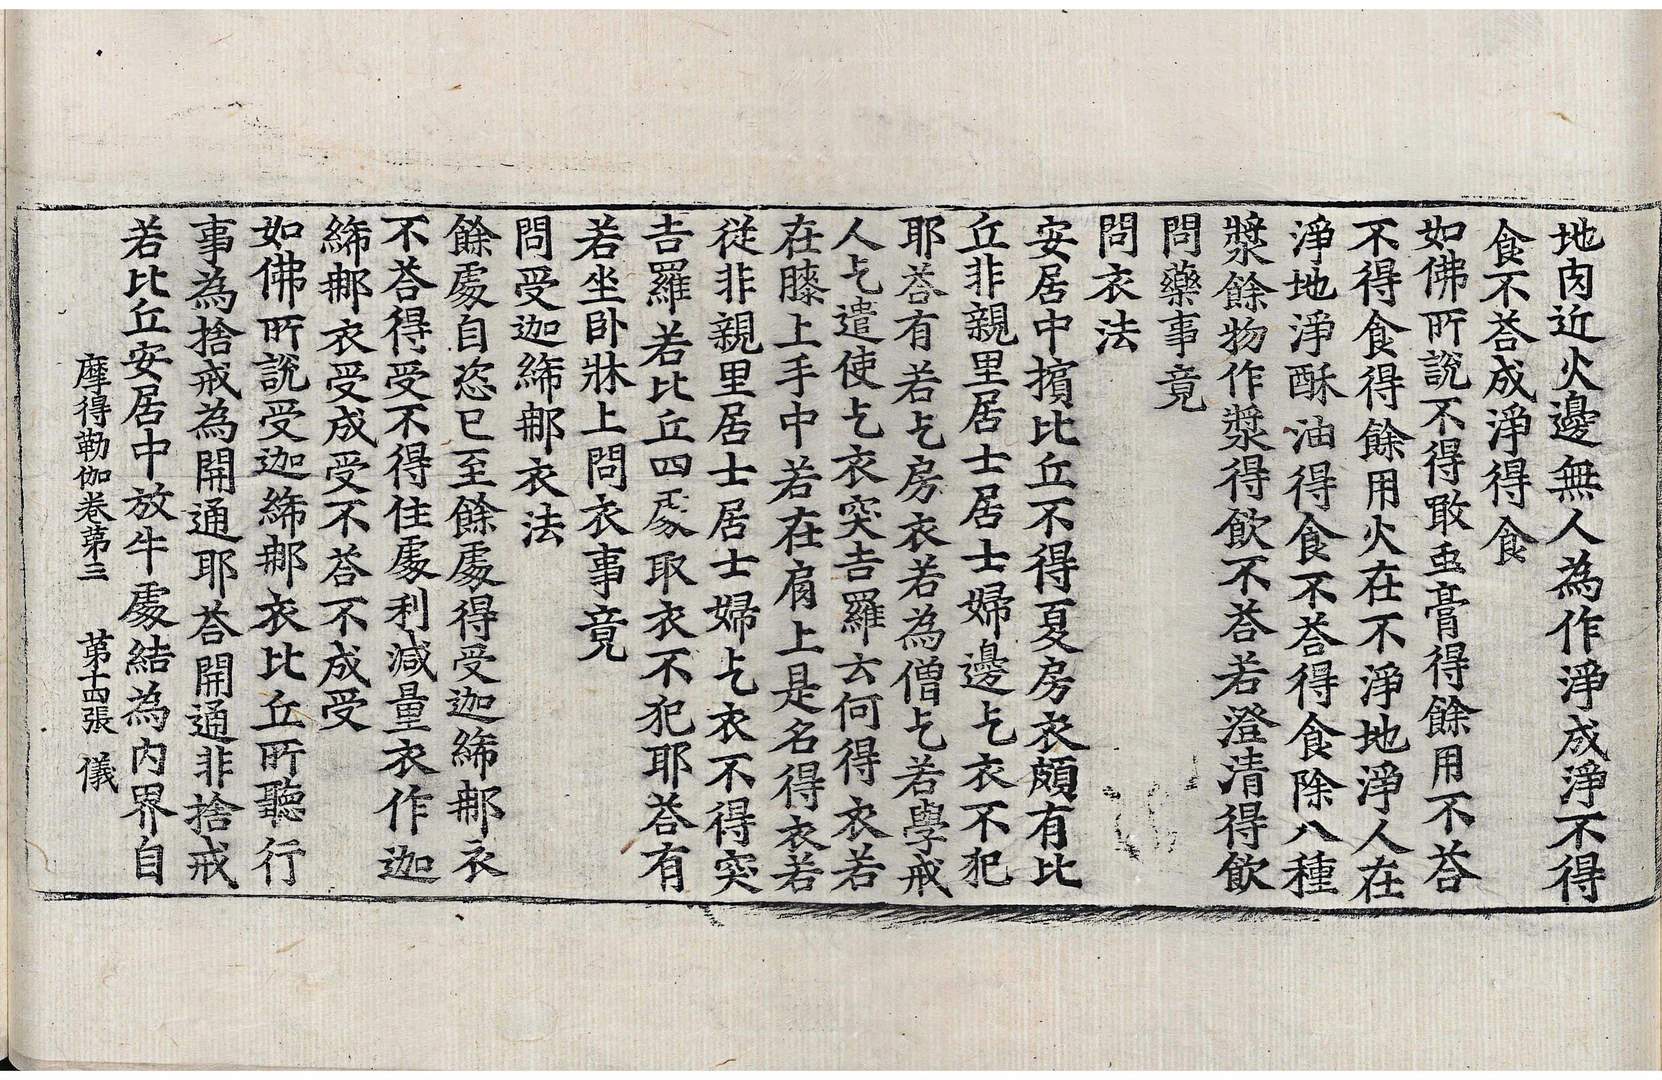 地内近火邊無人為作淨成淨不得
食不荅成淨得食
如佛所說不得敢䖝膏得餘用不荅
不得食得餘用火在不淨地淨人在
淨地淨酥油得食不荅得食除八種
漿餘物作漿得飲不荅若澄清得飲
問藥事竟
問衣法
安居中擯比丘不得夏房衣頗有比
丘非親里居士居士婦邊乞衣不犯
耶荅有若乞房衣若為僧乞若學戒
人乞遣使乞衣突吉羅云何得衣若
在膝上手中若在肩上是名得衣若
從非親里居士居士婦乞衣不得突
吉羅若比丘四處取衣不犯耶荅有
若坐卧牀上問衣事竟
問受迦絺那衣法
餘處自恣已至餘處得受迦絺那衣
不荅得受不得住處利減量衣作迦
絺那衣受成受不荅不成受
如佛所說受迦絺那衣比丘所聽行
事為捨戒為開通耶荅開通非捨戒
若比丘安居中放牛處結為內界自
摩得勒伽卷第三 第十四張 儀